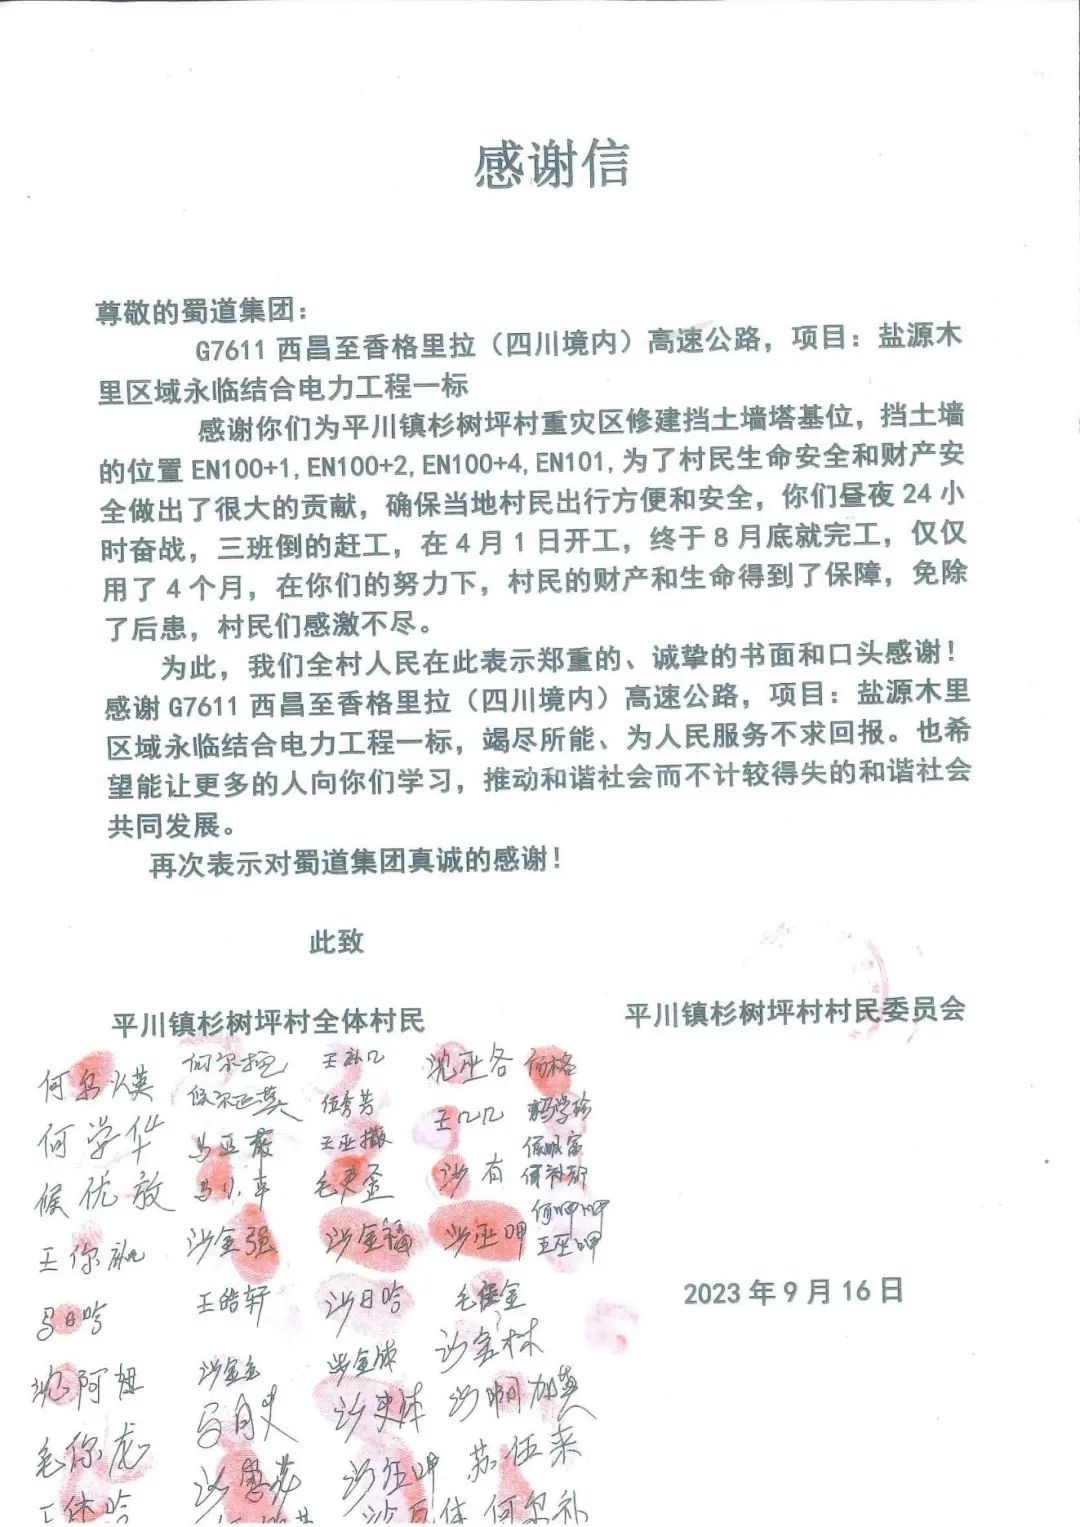 感谢信
尊敬的蜀道集团：
G7611西昌至香格里拉（四川境内）高速公路，项目：盐源木
里区域永临结合电力工程一标
感谢你们为平川镇杉树坪村重灾区修建挡土墙塔基位，挡土墙
的位置EN100+1,EN100+2,EN100+4,EN101,为了村民生命安全和财产安
全做出了很大的贡献，确保当地村民出行方便和安全，你们昼夜24小
时奋战，三班倒的赶工，在4月1日开工，终于8月底就完工，仅仅
用了4个月，在你们的努力下，村民的财产和生命得到了保障，免除
了后患，村民们感激不尽。
为此，我们全村人民在此表示郑重的、诚挚的书面和口头感谢！
感谢G7611西昌至香格里拉（四川境内）高速公路，项目：盐源木里
区域永临结合电力工程一标，竭尽所能、为人民服务不求回报。也希
望能让更多的人向你们学习，推动和谐社会而不计较得失的和谐社会
共同发展。
再次表示对蜀道集团真诚的感谢！
此致
平川镇杉树坪村全体村民 平川镇杉树坪村村民委员会
沈巫各 何格
何学华 伍秀芳 王几几
候优放 马小车 沙有
沙金强 沙金福 沙巫呷
马日哈 王皓轩 沙日哈
2023年9月16日
沈阿妞 沙金林
毛你龙
苏伍来